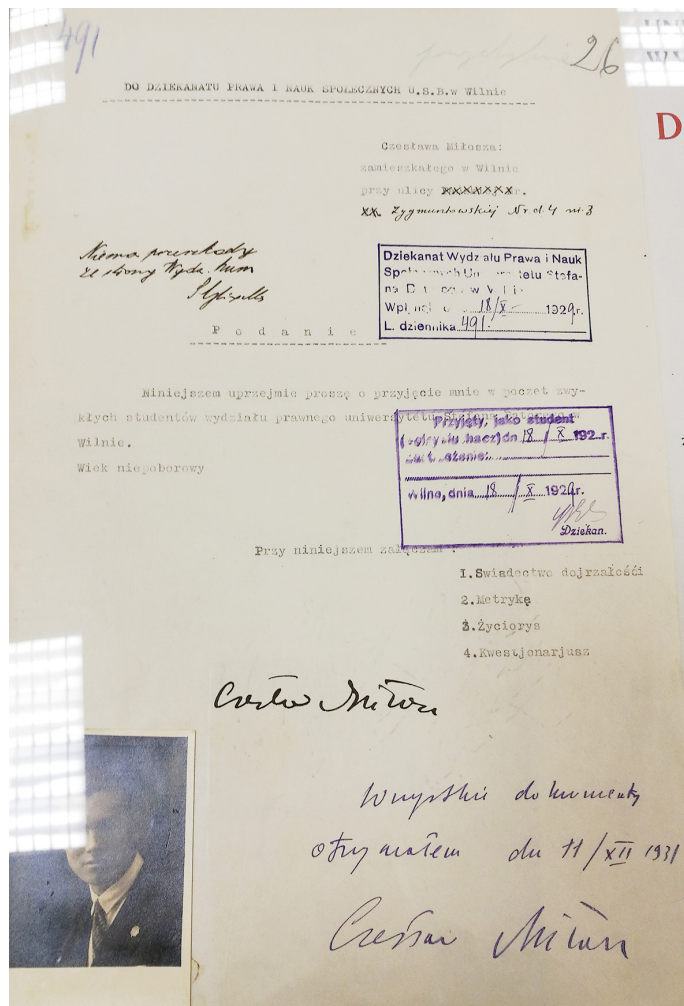 491
26
DO DZIEKANATU PRAWA I NAUK SPOŁECZNYCH U.S.B.w Wilnie
Czesława Miłosza:
zamieszkałego w Wilnie
przy ulicy xxxxxxxx r.
xx Zygmuntowskiej Nr. d. 4 m. 3
Niema przeszkody
ze strony Wydz. hum
Dziekanat Wydz ału Prawa i Nauk
Społecznych Uniwersytetu Stefa-
na w Wil
Wpłynęło 18/X 1929r.
L. dziennika 491.
Podanie
Niniejszem uprzejmie proszę o przyjęcie mnie w poczet zwy-
kłych studentów wydziału prawnego uniwersytetu Stefana Batorego w
Wilnie.
Wiek niepoborowy
Przyjęty, jako student
dn 18/X 192 r.
Wilno, dnia 18/X 1929r.
Dziekan.
Przy niniejszem załączam :
1.Swiadectwo dojrzałośći
2.Metrykę
3.Życiorys
4.Kwestjonarjusz
Czesław Miłosz
Wszystkie dokumenty
otrzymałem dn 11/XII 1931
Czesław Miłosz
D